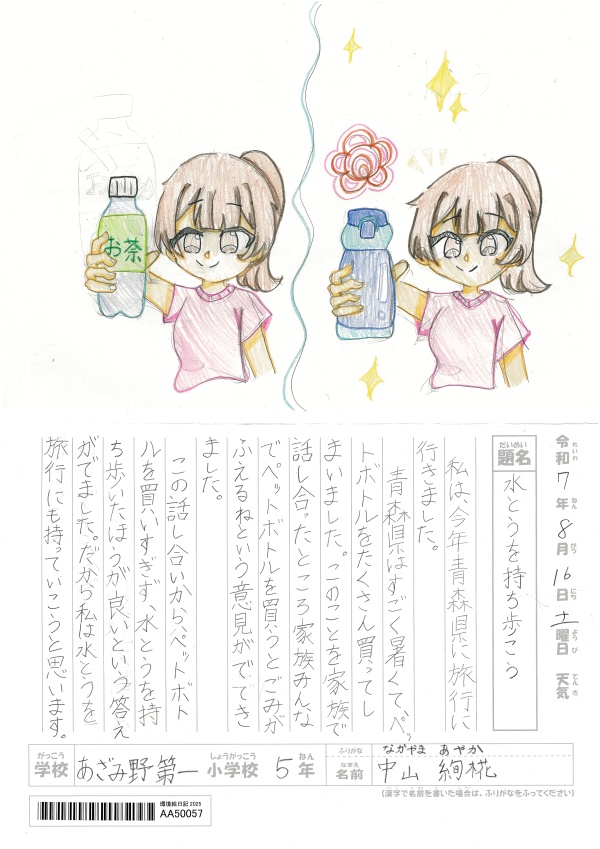 お茶
れいわ ねん がつ にち ようび てんき
令和7年8月16日土曜日 天気
だいめい
題名 水とうを持ち歩こう
私は、今年青森県に旅行に
行きました。
青森県はすごく暑くて、ペッ
トボトルをたくさん買ってし
まいました。このことを家族で
話し合ったところ家族みんな
でペットボトルを買うとごみが
ふえるねという意見がでてき
ました。
この話し合いから、ペットボト
ルを買いすぎず、水とうを持
ち歩いたほうが良いという答え
がでました。だから私は水とうを
旅行にも持っていこうと思います。
がっこう しょうがっこう ねん ふりがな なかやま あやか
学校 あざみ野第一 小学校 5年 なまえ 名前 中山 絢椛
(漢字で名前を書いた場合は、ふりがなをふってください)
環境絵日記 2025
AA50057